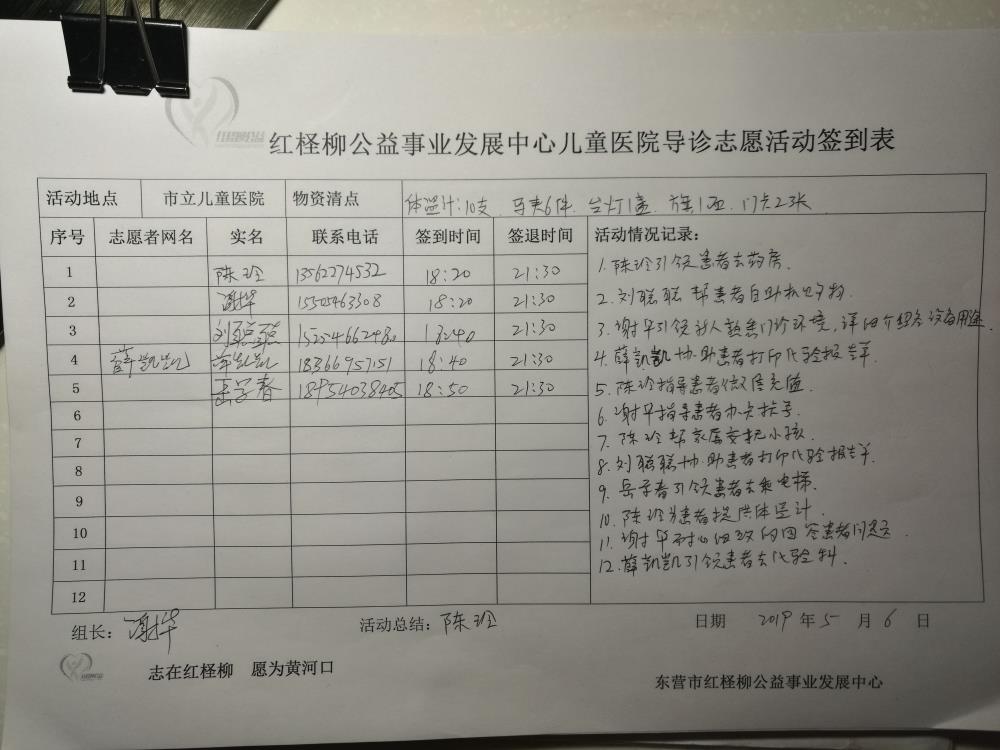 红柽柳公益事业发展中心儿童医院导诊志愿活动签到表
活动地点 市立儿童医院 物资清点 体温计:10支 马夹6件 台灯1盏 旗1面 门卡23张
序号 志愿者网名 实名 联系电话 签到时间 签退时间 活动情况记录:
1 陈玲 13562774532 18:20 21:30
2 谢华 15505463308 18:20 21:30
3 刘聪聪 15254662480 18:40 21:30
4 薛凯凯 薛凯凯 18366957151 18:40 21:30
5 岳学春 18954038405 18:50 21:30
6
7
8
9
10
11
12
1.陈玲引领患者去药房.
2.刘聪聪帮患者自助机
3.谢华引领新人熟悉门诊环境,详细介绍各设备用途
4.薛凯凯协助患者打印化验报告单.
5.陈玲指导患者微信充值
6.谢华指导患者办卡挂号
7.陈玲帮家属安抚小孩.
8.刘聪聪协助患者打印化验报告单.
9.岳学春引领患者去乘电梯.
10.陈玲为患者提供体温计.
11.谢华耐心细致的回答患者问题
12.薛凯凯引领患者去化验科.
组长:谢华 活动总结:陈玲 日期 2019 年 5 月 6 日
志在红柽柳 愿为黄河口
东营市红柽柳公益事业发展中心